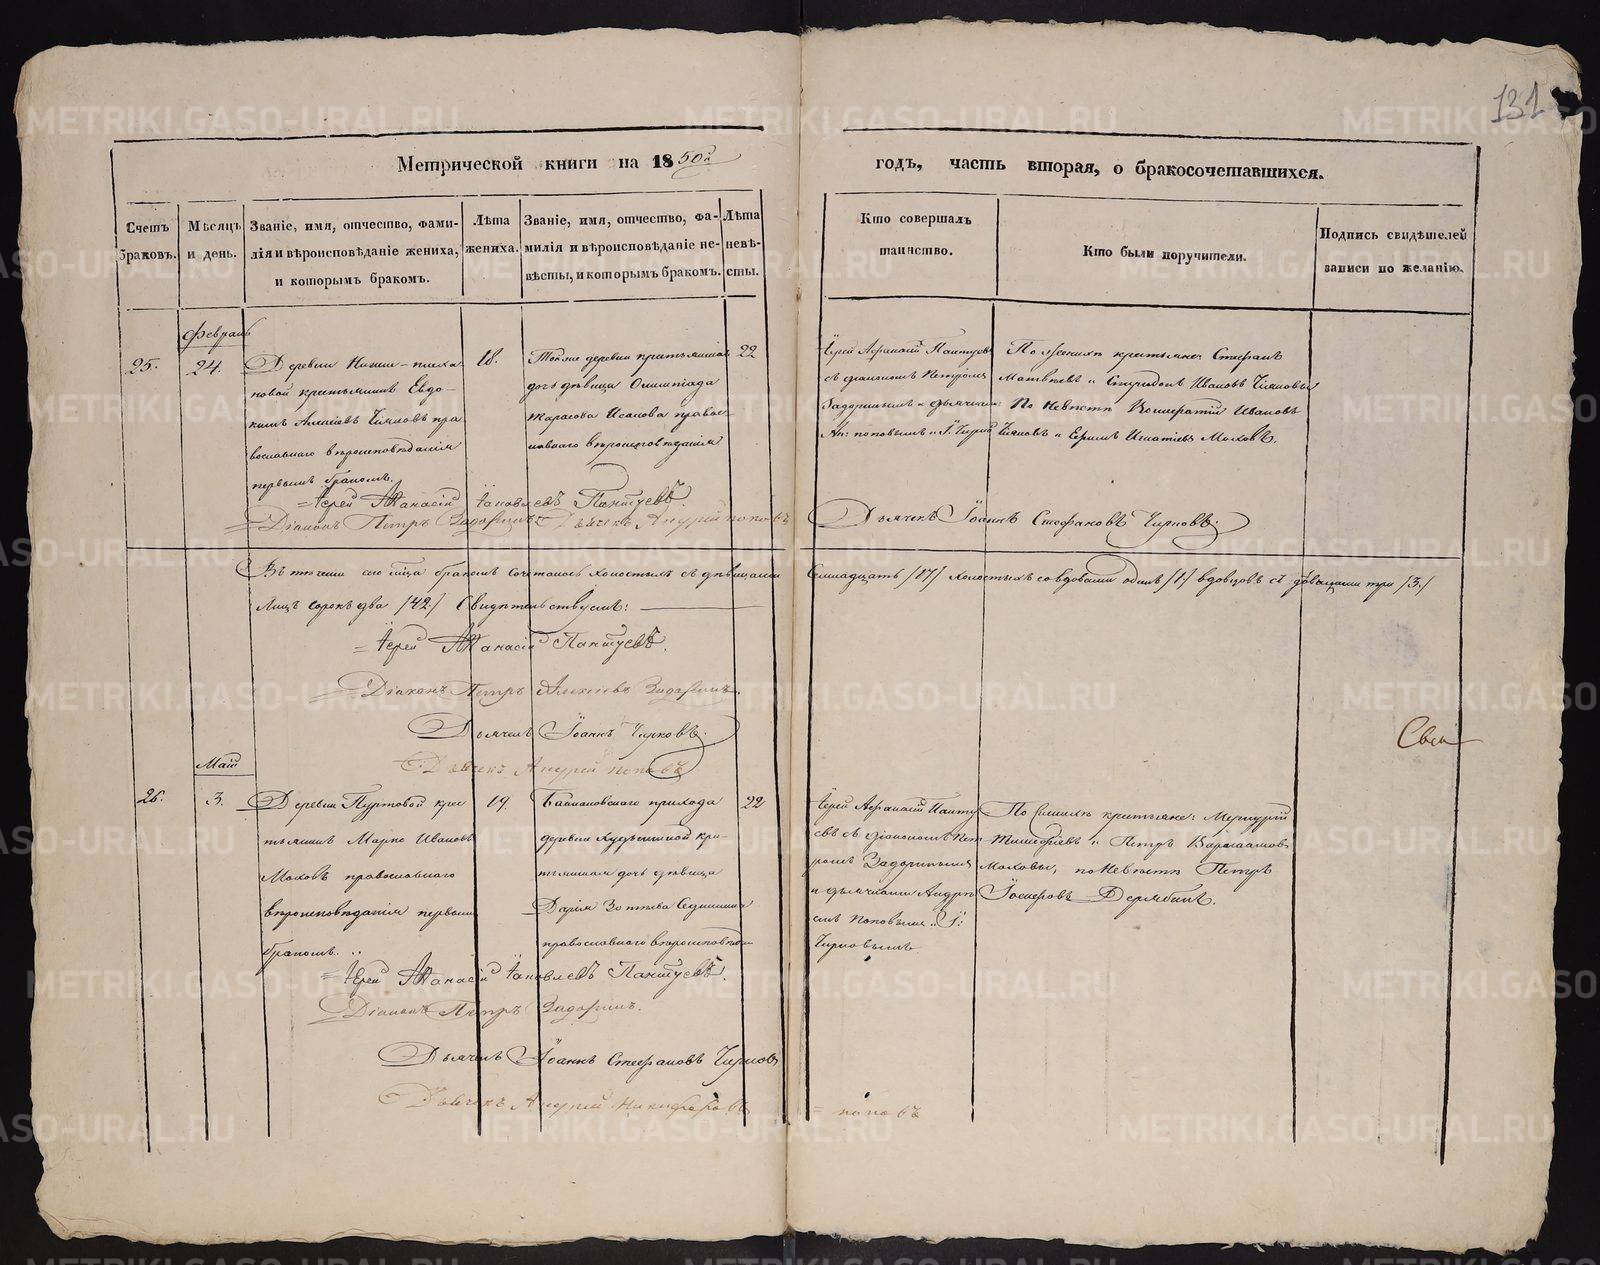 131
Метрической книги на 1850й
годъ, часть вторая, о бракосочетавшихся.
Счетъ браковъ.
Мѣсяцъ и день.
Званіе, имя, отчество, фами-
лія и вѣроисповѣданіе жениха,
и которымъ бракомъ.
Лѣта
жениха.
Званіе, имя, отчество, фа-
милія и вѣроисповѣданіе не-
вѣсты, и которымъ бракомъ.
Лѣта
невѣ-
сты.
Кто совершалъ
таинство.
Кто были поручители.
Подпись свидѣтелей
записи по желанію.
Февраль
25.
24.
Деревни
крестьянинъ Евдо-
кимъ Алексѣевъ пра
вославнаго вѣроисповѣданія
первымъ бракомъ.
18.
Тойже деревни крестьянская
дочь дѣвица Олимпіада
Исакова правос
лавнаго вѣроисповѣданія
22
Іерей Афанасій Пантуевъ
съ діакономъ Петромъ
Задоринымъ и дьячками
Ан: поповымъ и І.
По женихѣ крестьяне Стефанъ
Матвѣевъ и Спиридонъ Ивановъ
По невѣстѣ Ивановъ
и Ефимъ Игнатіевъ Моховъ.
Іерей Афанасій Іаковлевъ Пантуевъ
Діаконъ Петръ Задоринъ Дьячекъ Андрей поповъ
Дьячекъ Іоаннъ Стефановъ
Въ теченіи сего мѣсца бракомъ сочеталось холостыхъ съ дѣвицами
Семнадцать /17/ холостыхъ со вдовами одинъ /1/ вдовцовъ съ три /3/
Лицъ сорокъ два /42/ Свидѣтельствуемъ:
Іерей Афанасій Пантуевъ.
Діаконъ Петръ Алексіевъ Задоринъ
Дьячекъ Іоаннъ
Дьячекъ Андрей поповъ
Свя
Май
26.
3.
Деревни Пуртовой крес
тьянинъ Марко Ивановъ
Моховъ православнаго
вѣроисповѣданія первымъ
бракомъ.
19.
прихода
деревни кре-
стьянская дочь дѣвица
Дарія Зотѣева
православнаго вѣроисповѣдан
22
Іерей Афанасій Панту
евъ съ діакономъ Пет
ромъ Задоринымъ
и дьячками Андре
емъ поповымъ и І:
По женихѣ крестьяне: Меркурій
Тимофѣевъ и Петръ Варлаамовъ
Моховы, по невѣстѣ Петръ
Іосифовъ Дерябинъ.
Іерей Афанасій Іаковлевъ Пантуевъ.
Діаконъ Петръ Задоринъ.
Дьячекъ Іоаннъ Стефановъ
Дьячекъ Андрей Никифоровъ
= поповъ
METRIKI.GASO-URAL.RU